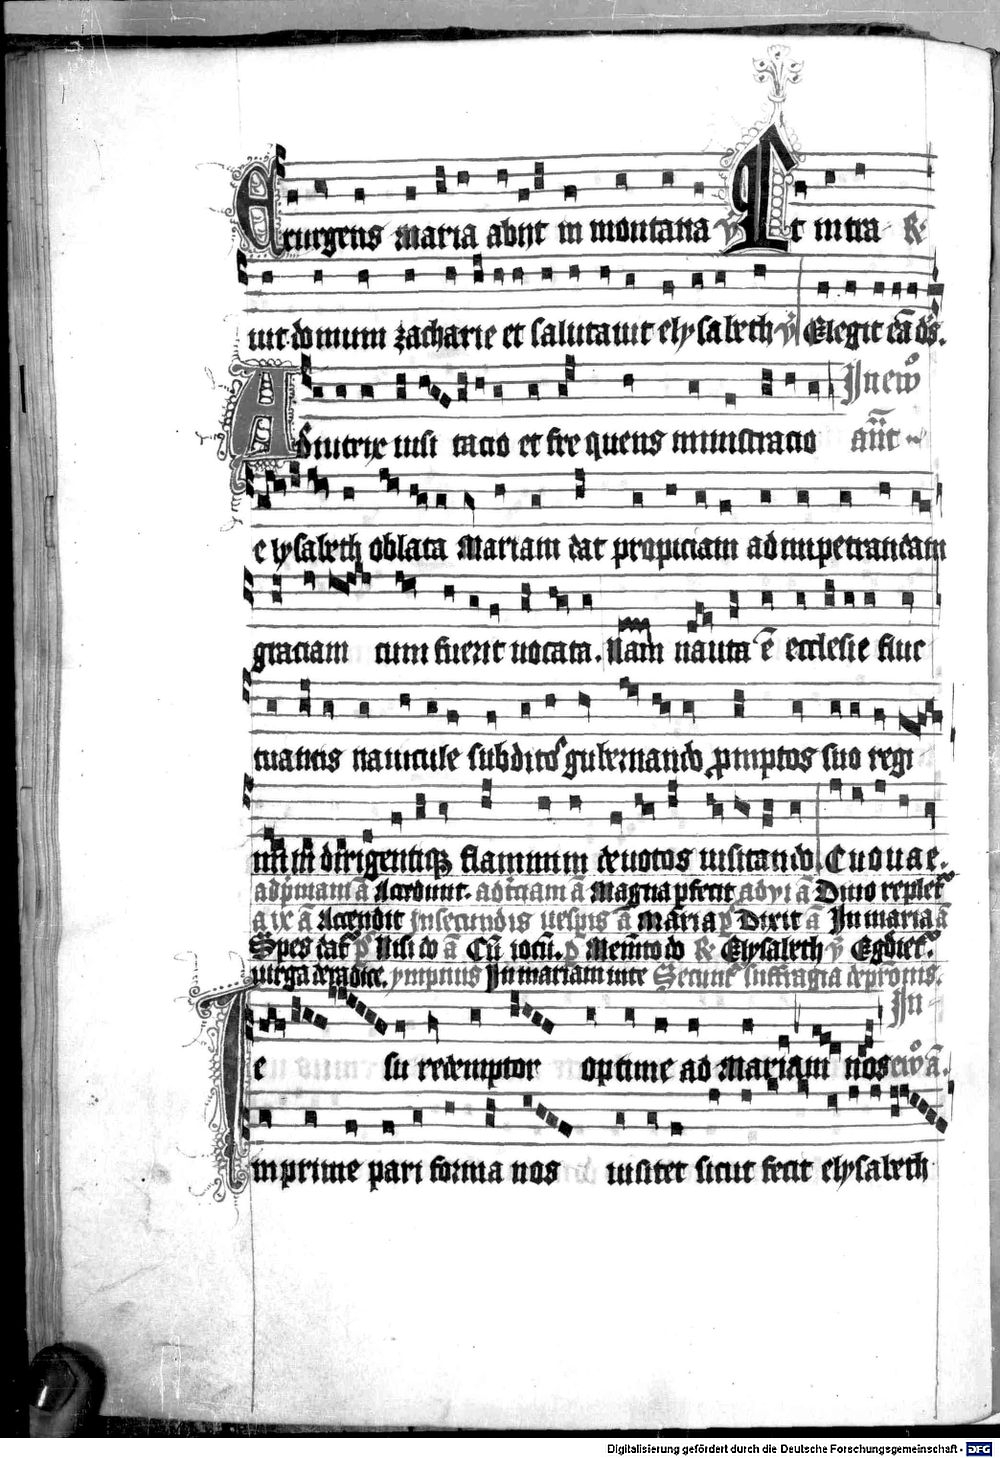 Exurgens maria abijt in montana v̄ Et intra R
uit domum zacharie et salutauit elysabeth v̄ Elegit eā dꝰs.
In ewº
Adiutrix uisi tacio et fre quens ministracio an̄t
elysabeth oblata Mariam dat propiciam ad impetrandam
graciam cum fuerit uocata. Nam nauta ē ecclesie fluc
tuantis nauicule subditos gubernando ꝓmptos suo regi
mini dirigentibusque flammini deuotos uisitando. Euouae.
ad pͥmam ā Accedunt. ad ꝑfecit ad vi ā Diuo replet
a ix ā Accendit In secundis uesꝑis ā Maria pͫ Dixit ā In maria ā
Spes dat pͫ Nisi do ā Cū iocū. pͫ Memēto do R Elysabeth v̄ Egdiet.
uirga de radice. ympnus In mariam inte Secunt suffragia de pronis.
In
Ie su redemptor optime ad Mariam nos ewº ā.
inprime pari forma nos uisitet sicut fecit elysabeth
Digitalisierung gefördert durch die Deutsche Forschungsgemeinschaft - DFG